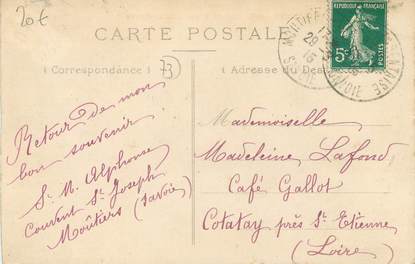 20€
CARTE POSTALE
RÉPUBLIQUE FRANÇAISE
5c
POSTES
Correspondance
73
Adresse du Des
Retour de mon
bon souvenir
Sr M. Alphonse
Couvent St Joseph
Moûtiers (Savoie)
Mademoiselle
Madeleine Lafond
Café Gallot
Cotatay près St Etienne
(Loire)